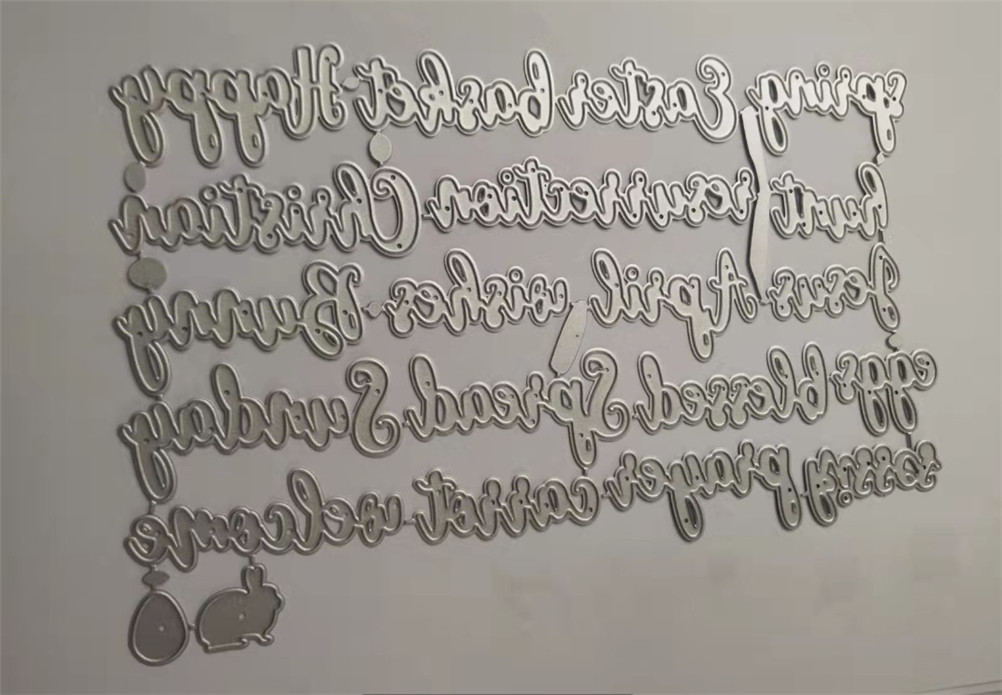 spring Easter basket Happy
hunt resurrection Christian
Jesus April wishes Bunny
eggs blessed Spread Sunday
prayer carrot welcome